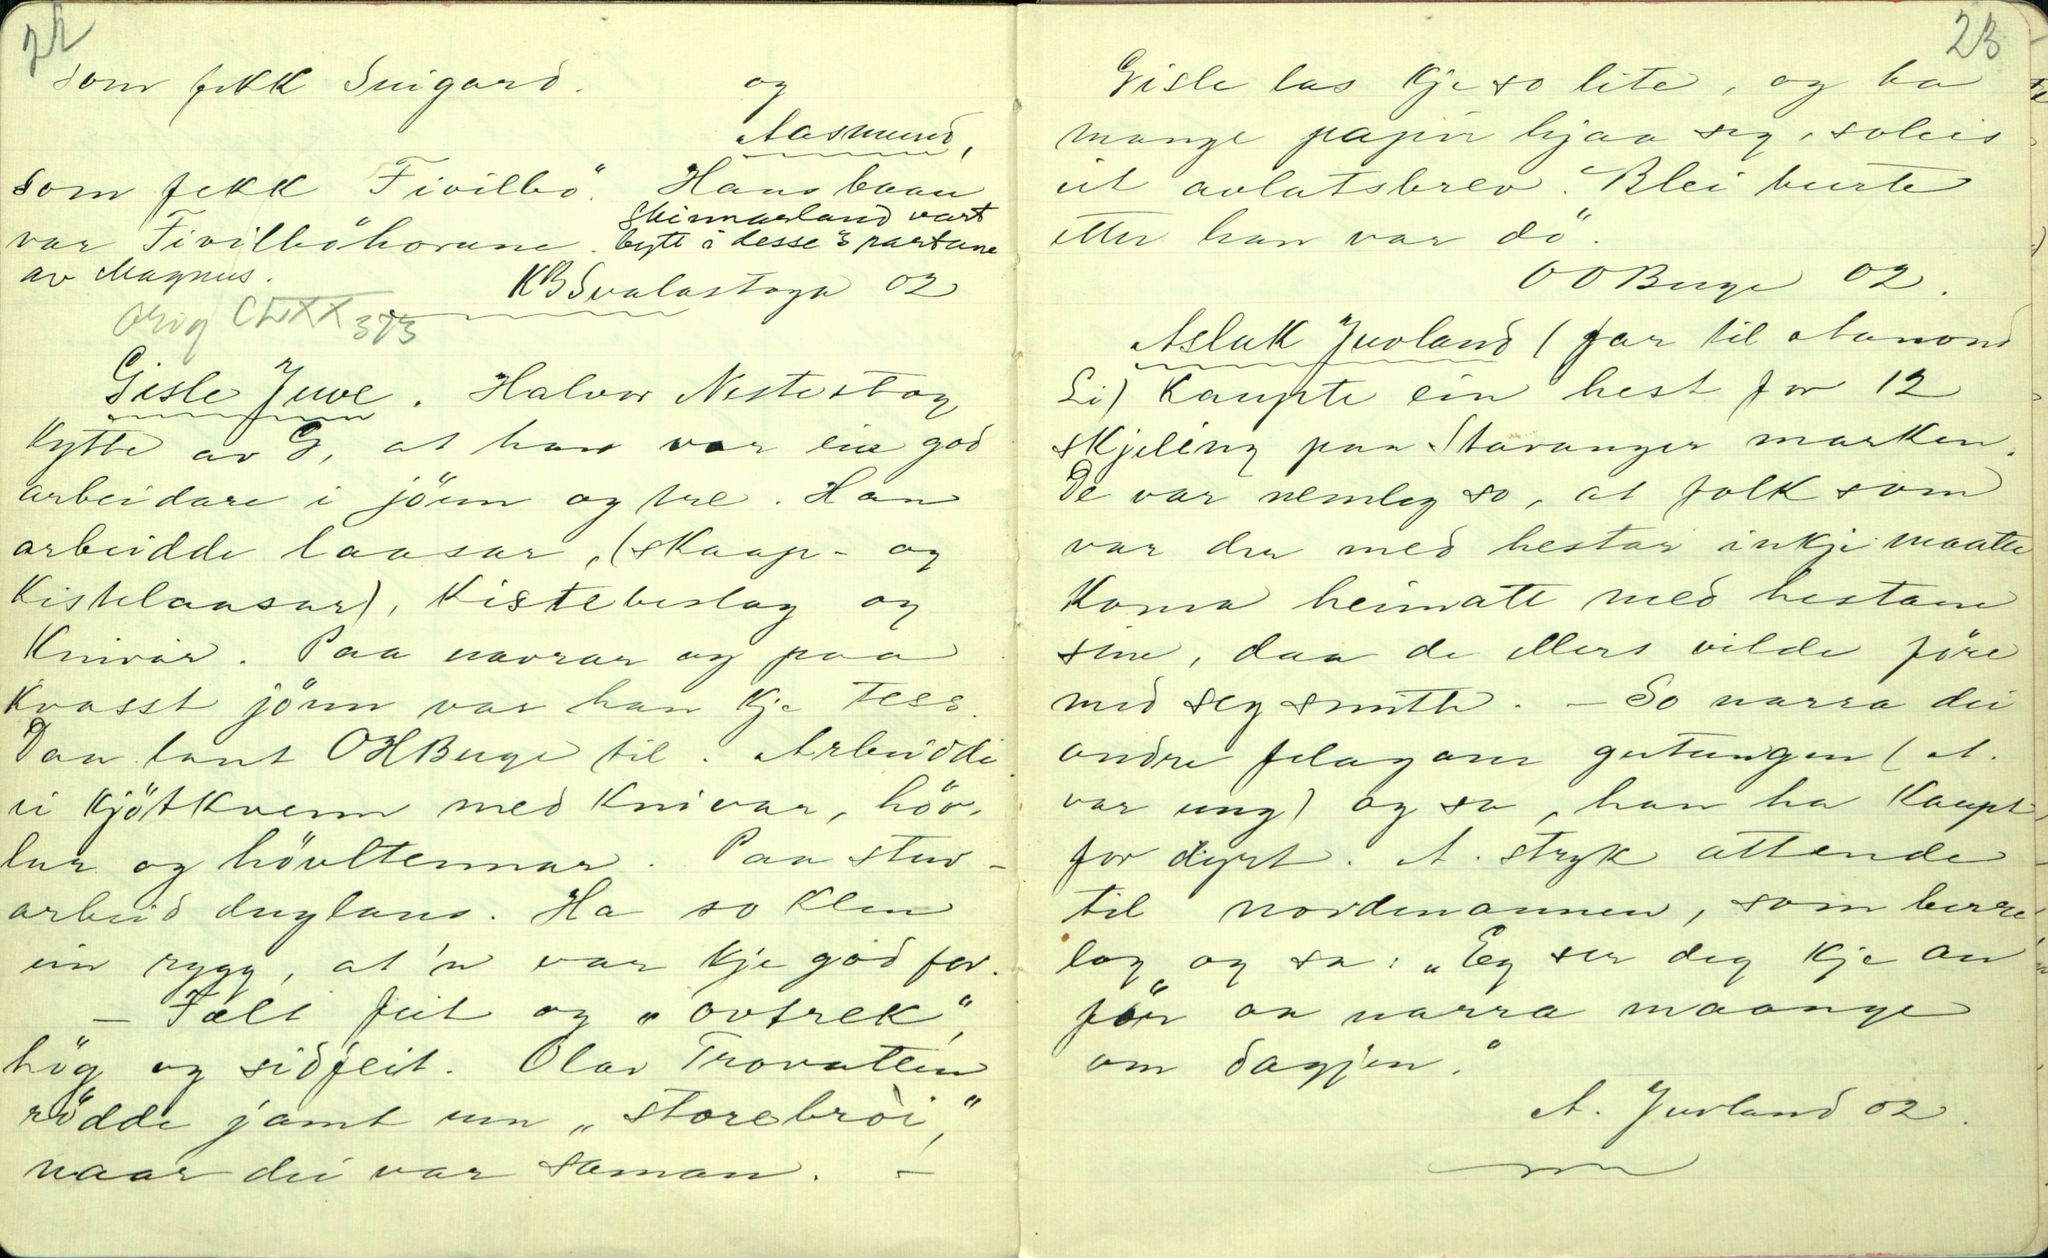 22
som fekk Suigard. og
Aasmund,
som fekk Fivilbö". Hans baan
var Fivilböhovane. Skinnarland vart
bytt i desse 3 partane
av Magnus.
KBSvalastoga 02
Orig CLXX 373
Gisle Juve. Halvor Nestestog
kytte av G, at han var ein god
arbeidare i jönn og tre. Han
arbeidde laasar, (skaap- og
kistelaasar), kistebeslag og
knivar. Paa navrar og paa
kvasst jönn var han kje tess.
Daa lant OHBuge til. Arbeidde
ei kjötkvenn med knivar, höv-
lar og hövltennar. Paa stuv-
arbeid duglaus. Ha so klen
ein rygg, at'n var kje god for.
— Fælt feit og „ovtrek",
hög og sidfeit. Olav Trovatten
rödde jamt um „storebròi",
naar dei var saman. —
23
Gisle las kje so lite, og ha
mange papir hjaa seg, soleis
eit avlatsbrev. Blei burte
etter han var dö".
OOBuge 02.
Aslak Juvland (far til Aanond
Li) kaupte ein hest for 12
skjeling paa Stavanger marken.
De var nemleg so, at folk som
var der med hestar inkje maatte
koma heimatt med hestane
sine, daa de ellers vilde före
med seg smitte. — So narra dei
andre felagane gutungen (A.
var ung) og sa, han ha kaupt
for dyrt. A. stryk attende
til nordmannen, som berre
log og sa: „Eg ser deg kje an
för an narra maange
om dagjen."
A. Juvland 02.